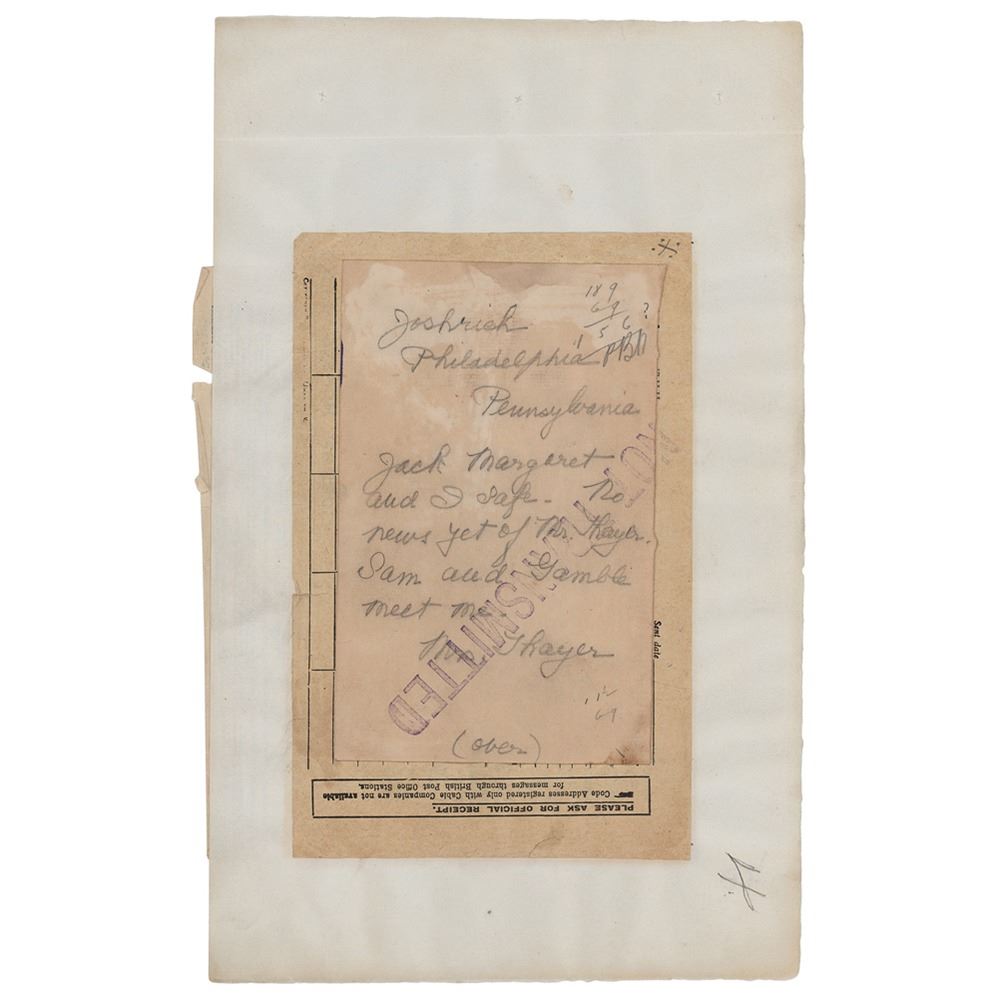 4
189
69 ?
5 6
Joshrich
Philadelphia
Pennsylvania
Jack Margaret
and I safe - No
news yet of Mr. Thayer.
Sam and Gamble
meet me
Mrs Thayer
NOT TRANSMITTED
69
(over)
Sent date
PLEASE ASK FOR OFFICIAL RECEIPT.
Code Addresses registered only with Cable Companies are not available
for messages through British Post Office Stations.
4